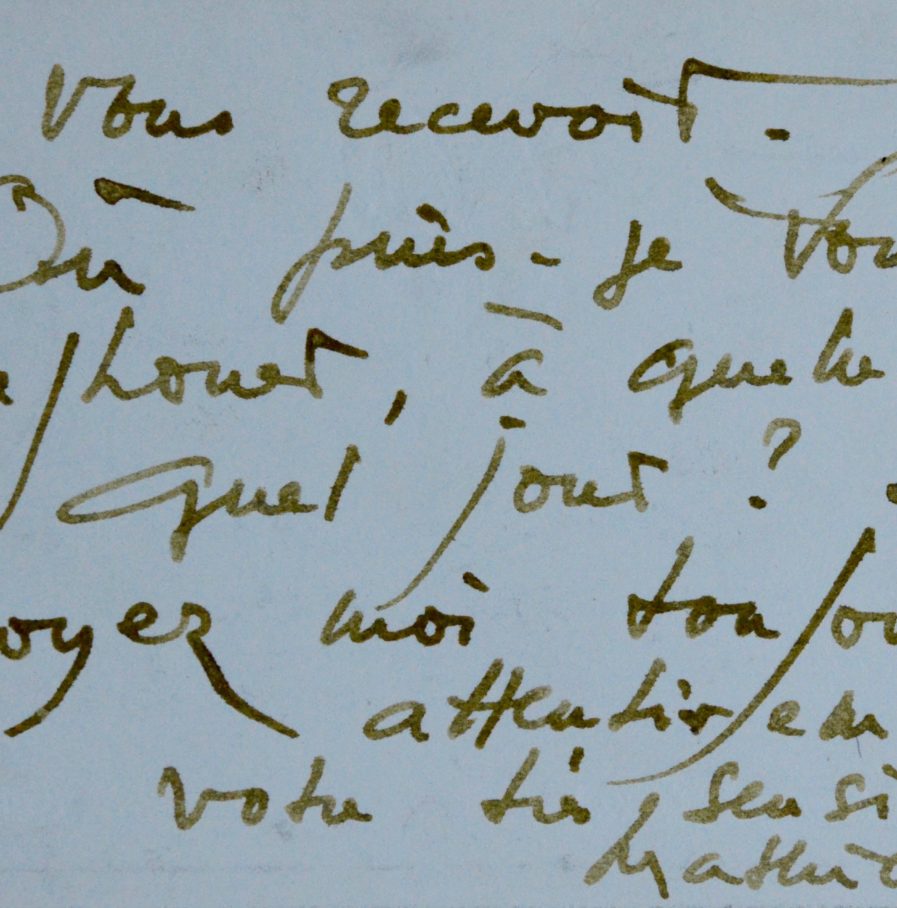 vous recevoir. -
Où puis-je vou
ephoner, à quelle
quel jour ?
oyez moi toujou
attentivem
votre très sensi
Mathie